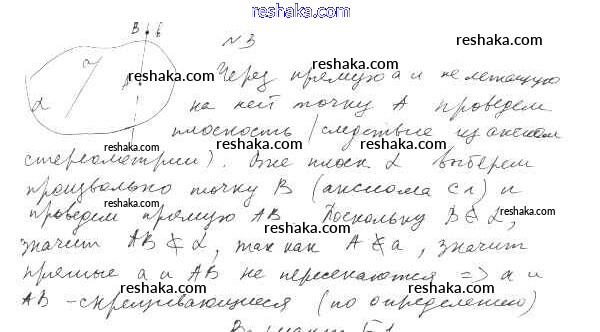 reshaka.com
B b
N 3
reshaka.com
reshaka.com
A reshaka.com Через прямую a и не лежащую
на ней точку A проведем
reshaka.com
α плоскость (следствие из аксиом
стереометрии). Вне плоск α выберем
reshaka.com
произвольно точку B (аксиома C1) и
reshaka.com
проведем прямую AB Поскольку B ∉ α,
reshaka.com
значит AB ⊄ α, так как A ∉ a, значит
reshaka.com
прямые a и AB не пересекаются => a и
AB - скрещивающиеся (по определению)
reshaka.com
Вариант Б1